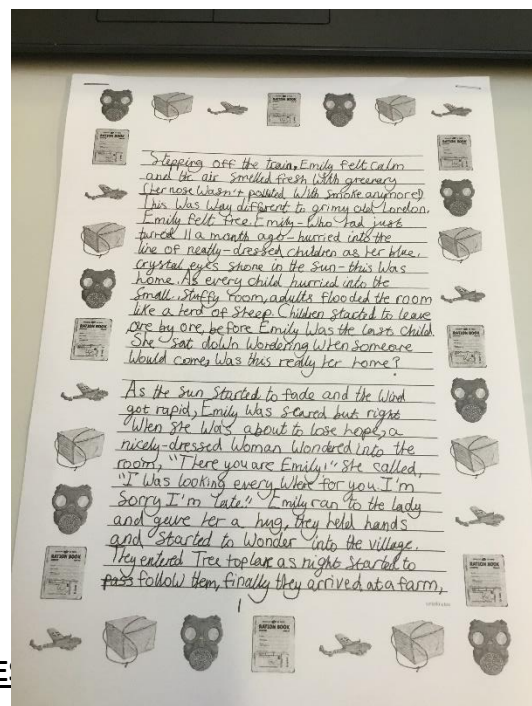 Stepping off the train, Emily felt calm
and the air smelled fresh with greenery
(her nose wasn't polluted with smoke anymore)
This was way different to grimy old London,
Emily felt free. Emily - who had just
turned 11 a month ago - hurried into the
line of neatly-dressed children as her blue,
crystal eyes shone in the sun - this was
home. As every child hurried into the
small, stuffy room, adults flooded the room
like a herd of sheep. Children started to leave
one by one, before Emily was the last child
She sat down wondering when someone
would come, was this really her home?
As the sun started to fade and the wind
got rapid, Emily was scared but right
when she was about to lose hope, a
nicely-dressed woman wondered into the
room, "There you are Emily!" she called,
"I was looking every where for you. I'm
sorry I'm late." Emily ran to the lady
and gave her a hug, they held hands
and started to wonder into the village.
They entered Tree top lane as night started to
pass follow them, finally they arrived at a farm,
RATION BOOK